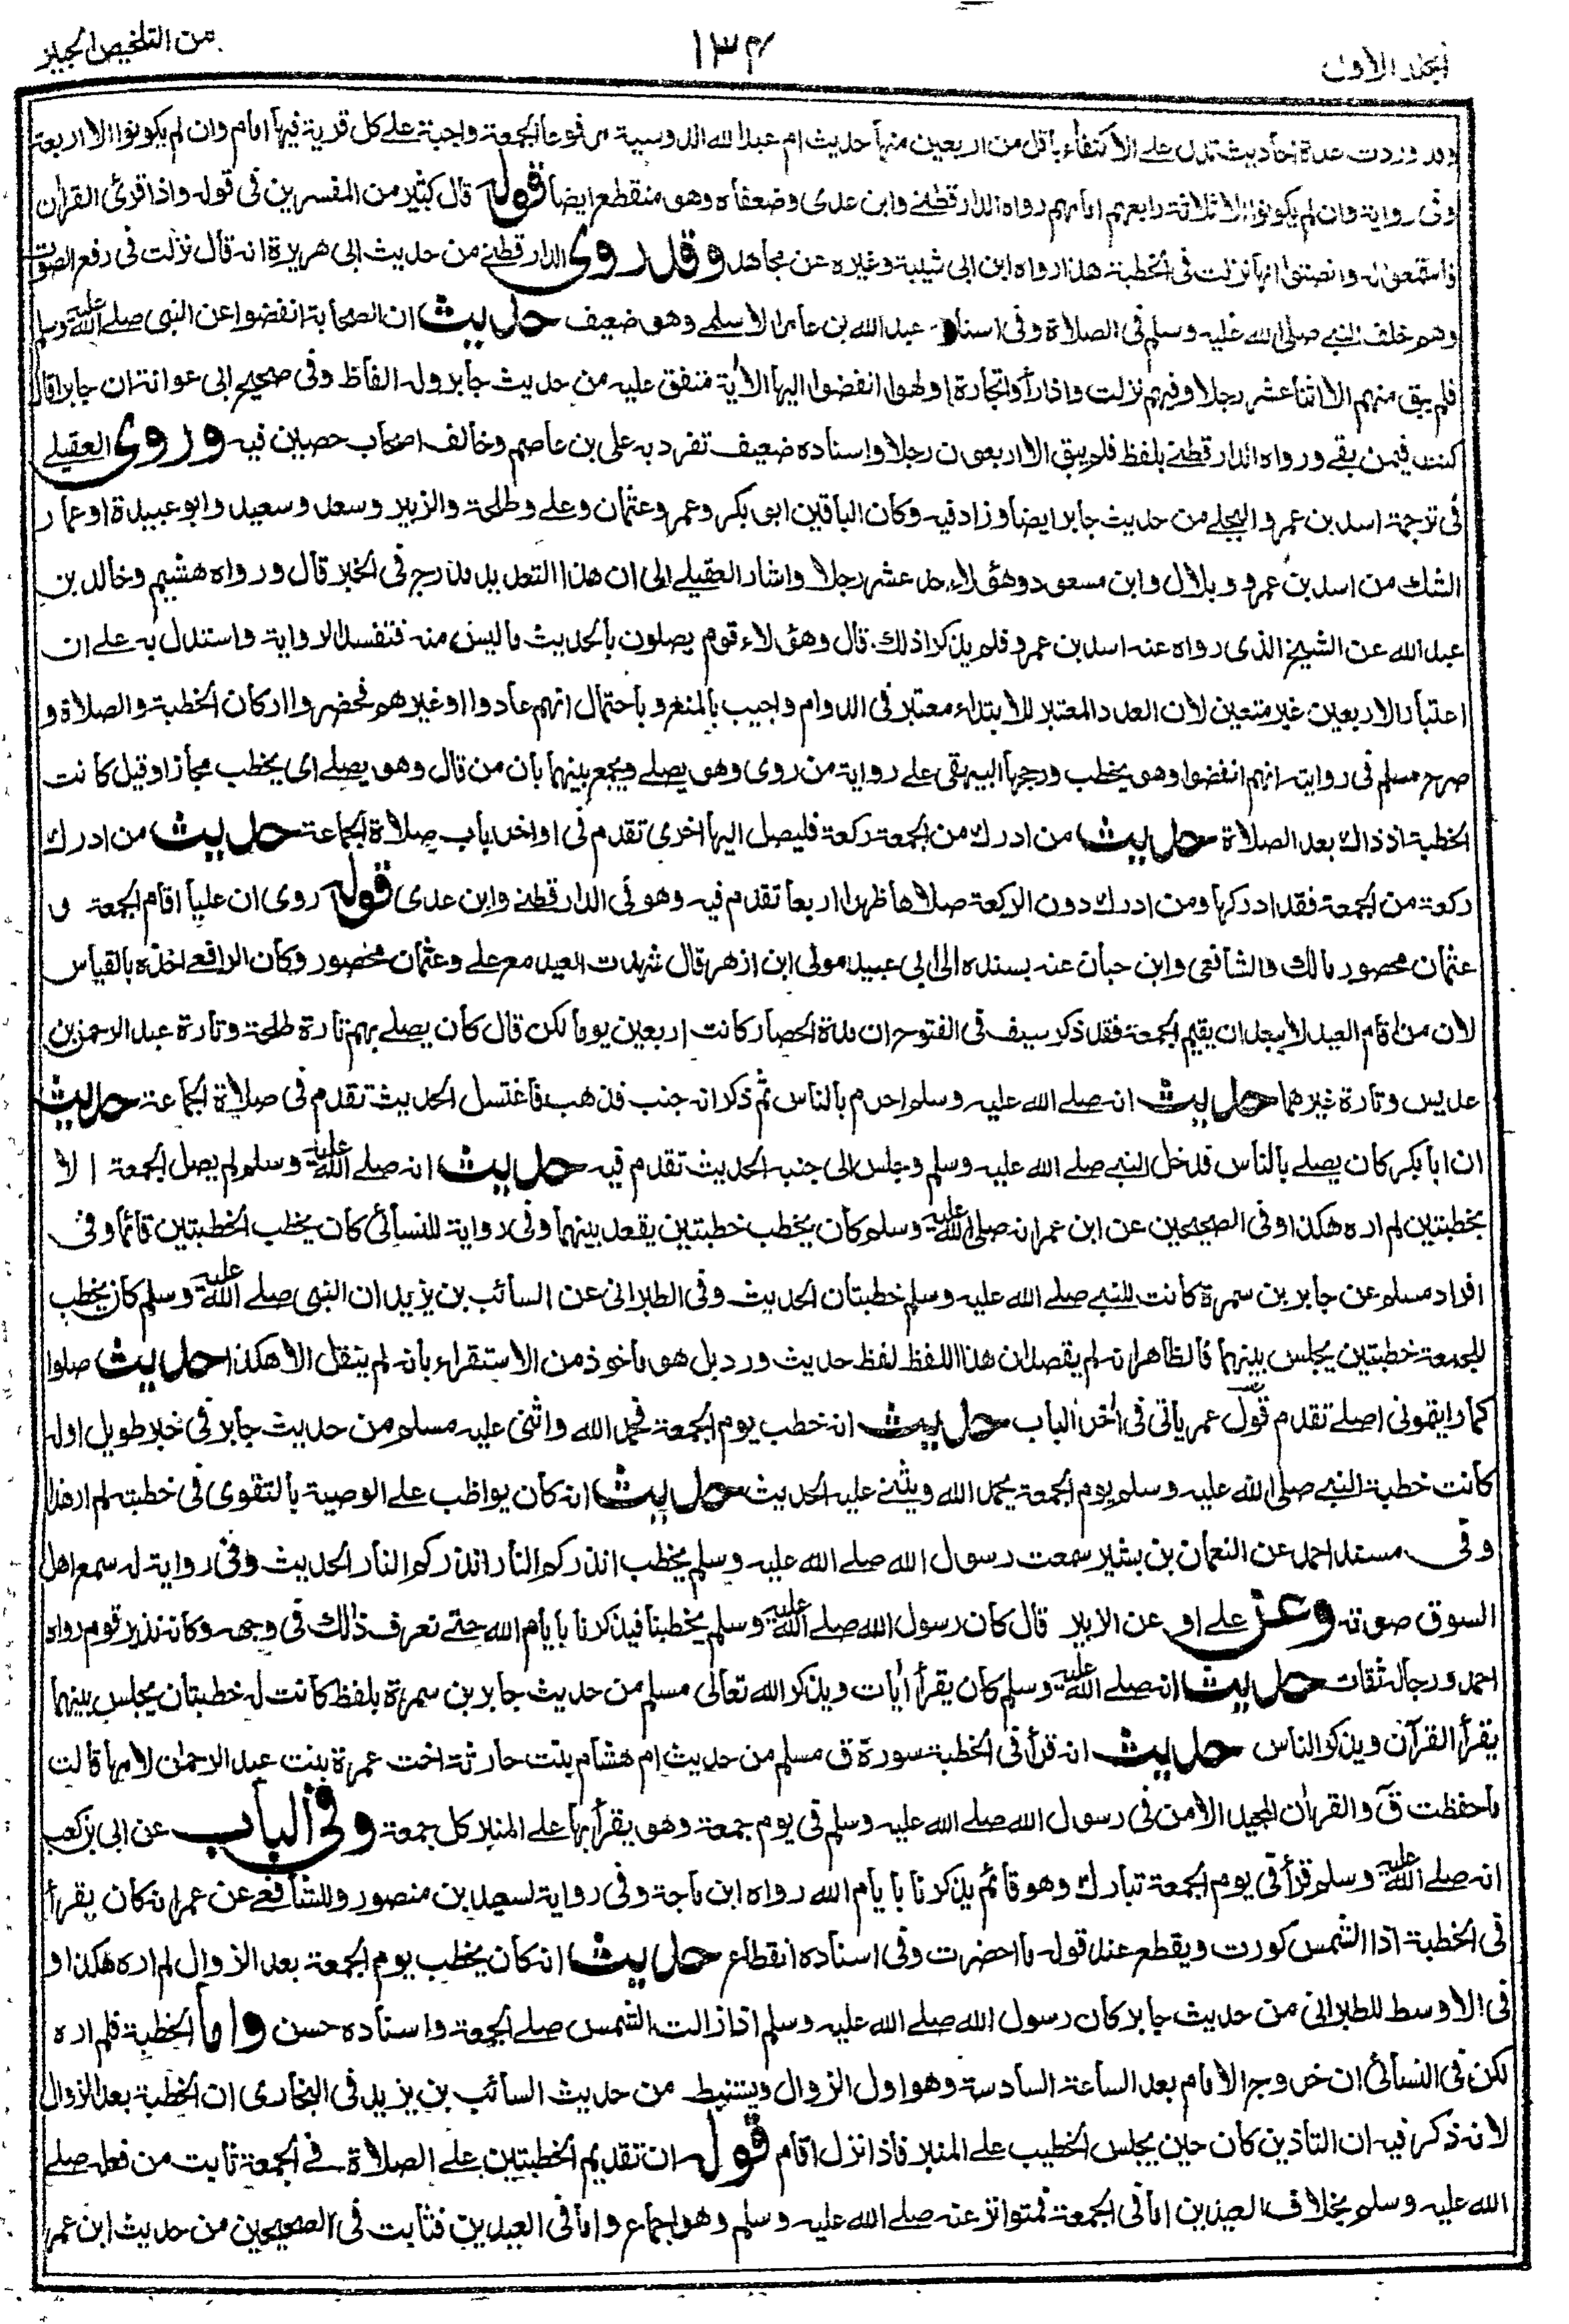 المجلد الاول
١٣٤
من التلخيص الحبير
وقد وردت عدة احاديث تدل على الاكتفاء باقل من اربعين منها حديث ام عبد الله الدوسية مرفوعا الجمعة واجبة على كل قرية فيها امام وان لم يكونوا الا اربعة
وفى رواية وان لم يكونوا الا ثلاثة رابعهم امامهم رواه الدارقطنى وابن عدى وضعفاه وهو منقطع ايضا قوله قال كثير من المفسرين فى قوله واذا قرئ القرآن
فاستمعوا له وانصتوا انها نزلت فى الخطبة هذا رواه ابن ابى شيبة وغيره عن مجاهد وقد روى الدارقطنى من حديث ابى هريرة انه قال نزلت فى رفع الصوت
وهم خلف النبى صلى الله عليه وسلم فى الصلاة وفى اسناده عبد الله بن عامر الاسلمى وهو ضعيف حديث ان الصحابة انفضوا عن النبى صلى الله عليه وسلم
فلم يبق منهم الا اثنا عشر رجلا وفيهم نزلت واذا رأوا تجارة او لهوا انفضوا اليها الآية متفق عليه من حديث جابر وله الفاظ وفى صحيح ابى عوانة ان جابرا قال
كنت فيمن بقى ورواه الدارقطنى بلفظ فلم يبق الا اربعون رجلا واسناده ضعيف تفرد به على بن عاصم وخالف اصحاب حصين فيه وروى العقيلى
فى ترجمة اسد بن عمرو البجلى من حديث جابر ايضا وزاد فيه وكان الباقين ابو بكر وعمر وعثمان وعلى وطلحة والزبير وسعد وسعيد وابو عبيدة او عمار
الشك من اسد بن عمرو وبلال وابن مسعود وهؤلاء احد عشر رجلا واشار العقيلى الى ان هذا التعديد مدرج فى الخبر قال ورواه هشيم وخالد بن
عبد الله عن الشيخ الذى رواه عنه اسد بن عمرو فلم يذكرا ذلك قال وهؤلاء قوم يصلون بالحديث ما ليس منه فتفسد الرواية واستدل به على ان
اعتبار الاربعين غير متعين لان العدد المعتبر للابتداء معتبر فى الدوام واجيب بالمنع وباحتمال انهم عادوا او غيرهم فحضروا اركان الخطبة والصلاة و
صرح مسلم فى روايته انهم انفضوا وهو يخطب ورجحها البيهقى على رواية من روى وهو يصلى ويجمع بينهما بان من قال وهو يصلى اى يخطب مجازا وقيل كانت
الخطبة اذ ذاك بعد الصلاة حديث من ادرك من الجمعة ركعة فليصل اليها اخرى تقدم فى اواخر باب صلاة الجماعة حديث من ادرك
ركعة من الجمعة فقد ادركها ومن ادرك دون الركعة صلاها ظهرا اربعا تقدم فيه وهو فى الدارقطنى وابن عدى قوله روى ان عليا اقام الجمعة و
عثمان محصور مالك والشافعى وابن حبان عنه بسنده الى ابى عبيد مولى ابن ازهر قال شهدت العيد مع على وعثمان محصور وكان الرافعى اخذه بالقياس
لان من اقام العيد لا يبعد ان يقيم الجمعة فقد ذكر سيف فى الفتوح ان مدة الحصار كانت اربعين يوما لكن قال كان يصلى بهم تارة طلحة وتارة عبد الرحمن بن
عديس وتارة غيرهما حديث انه صلى الله عليه وسلم احرم بالناس ثم ذكر انه جنب فذهب فاغتسل الحديث تقدم فى صلاة الجماعة حديث
ان ابا بكر كان يصلى بالناس فدخل النبى صلى الله عليه وسلم وجلس الى جنبه الحديث تقدم فيه حديث انه صلى الله عليه وسلم لم يصل الجمعة الا
بخطبتين لم اره هكذا وفى الصحيحين عن ابن عمر انه صلى الله عليه وسلم كان يخطب خطبتين يقعد بينهما وفى رواية للنسائى كان يخطب الخطبتين قائما وفى
افراد مسلم عن جابر بن سمرة كانت للنبى صلى الله عليه وسلم خطبتان الحديث وفى الطبرانى عن السائب بن يزيد ان النبى صلى الله عليه وسلم كان يخطب
للجمعة خطبتين يجلس بينهما فالظاهر انه لم يقصد ان هذا اللفظ لفظ حديث ورد بل هو ماخوذ من الاستقراء بانه لم ينقل الا هكذا حديث صلوا
كما رايتمونى اصلى تقدم قول عمر ياتى فى آخر الباب حديث انه خطب يوم الجمعة فحمد الله واثنى عليه مسلم من حديث جابر فى خبر طويل اوله
كانت خطبة النبى صلى الله عليه وسلم يوم الجمعة يحمد الله ويثنى عليه الحديث حديث انه كان يواظب على الوصية بالتقوى فى خطبته لم ار هذا
وفى مسند احمد عن النعمان بن بشير سمعت رسول الله صلى الله عليه وسلم يخطب انذركم النار انذركم النار الحديث وفى رواية له سمع اهل
السوق صوته وعن على او عن الزبير قال كان رسول الله صلى الله عليه وسلم يخطبنا فيذكرنا بايام الله حتى نعرف ذلك فى وجهه وكانه نذير قوم رواه
احمد ورجاله ثقات حديث انه صلى الله عليه وسلم كان يقرأ آيات ويذكر الله تعالى مسلم من حديث جابر بن سمرة بلفظ كانت له خطبتان يجلس بينهما
يقرأ القرآن ويذكر الناس حديث انه قرأ فى الخطبة سورة ق مسلم من حديث ام هشام بنت حارثة اخت عمرة بنت عبد الرحمن لامها قالت
ما حفظت ق والقرآن المجيد الا من فى رسول الله صلى الله عليه وسلم فى يوم جمعة وهو يقرأ بها على المنبر كل جمعة وفى الباب عن ابى بن كعب
انه صلى الله عليه وسلم قرأ فى يوم الجمعة تبارك وهو قائم يذكرنا بايام الله رواه ابن ماجة وفى رواية لسعيد بن منصور وللشافعى عن عمر انه كان يقرأ
فى الخطبة اذا الشمس كورت ويقطع عند قوله ما احضرت وفى اسناده انقطاع حديث انه كان يخطب يوم الجمعة بعد الزوال لم اره هكذا و
فى الاوسط للطبرانى من حديث جابر كان رسول الله صلى الله عليه وسلم اذا زالت الشمس صلى الجمعة واسناده حسن واما الخطبة فلم اره
لكن فى النسائى ان خروج الامام بعد الساعة السادسة وهو اول الزوال ويستنبط من حديث السائب بن يزيد فى البخارى ان الخطبة بعد الزوال
لانه ذكر فيه ان التاذين كان حين يجلس الخطيب على المنبر فاذا نزل اقام قوله ان تقديم الخطبتين على الصلاة فى الجمعة ثابت من فعله صلى
الله عليه وسلم بخلاف العيدين اما فى الجمعة فمتواتر عنه صلى الله عليه وسلم وهو اجماع واما فى العيدين فثابت فى الصحيحين من حديث ابن عمر